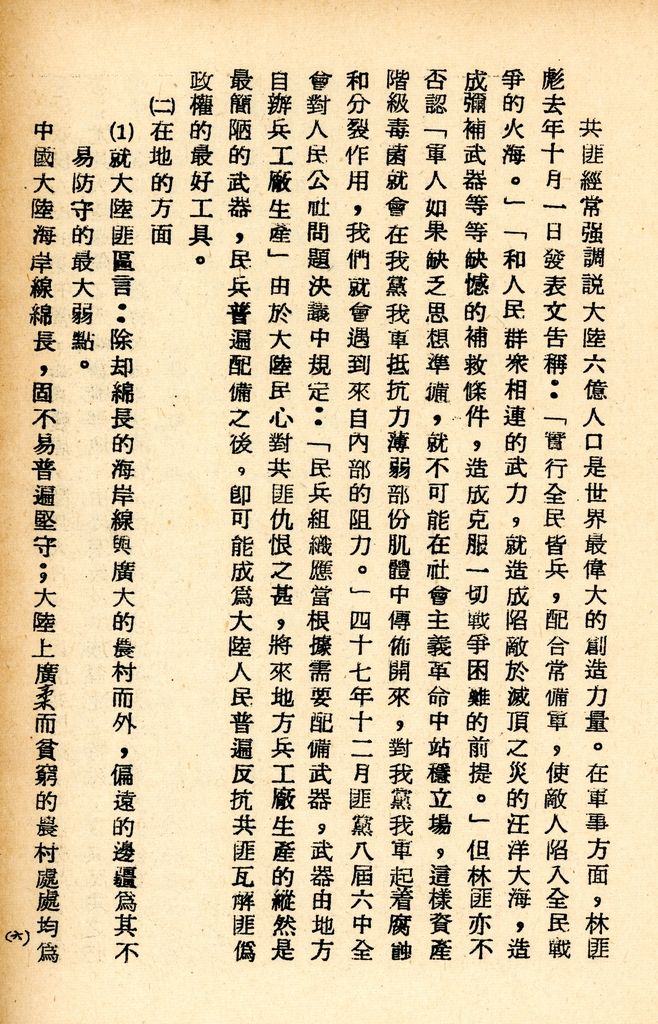 共匪經常强調説大陸六億人口是世界最偉大的創造力量。在軍事方面，林匪
彪去年十月一日發表文告稱：「實行全民皆兵，配合常備軍，使敵人陷入全民戰
爭的火海。」「和人民群衆相連的武力，就造成陷敵於滅頂之災的汪洋大海，造
成彌補武器等等缺憾的補救條件，造成克服一切戰爭困難的前提。」但林匪亦不
否認「軍人如果缺乏思想準備，就不可能在社會主義革命中站穩立場，這樣資產
階級毒菌就會在我黨我軍抵抗力薄弱部份肌體中傳佈開來，對我黨我軍起着腐蝕
和分裂作用，我們就會遇到來自內部的阻力。」四十七年十二月匪黨八屆六中全
會對人民公社問題決議中規定：「民兵組織應當根據需要配備武器，武器由地方
自辦兵工廠生產」由於大陸民心對共匪仇恨之甚，將來地方兵工廠生產的縱然是
最簡陋的武器，民兵普遍配備之後，卽可能成爲大陸人民普遍反抗共匪瓦解匪僞
政權的最好工具。
㈡在地的方面
⑴就大陸匪區言：除却綿長的海岸線與廣大的農村而外，偏遠的邊疆爲其不
易防守的最大弱點。
中國大陸海岸線綿長，固不易普遍堅守；大陸上廣柔而貧窮的農村處處均爲
(六)